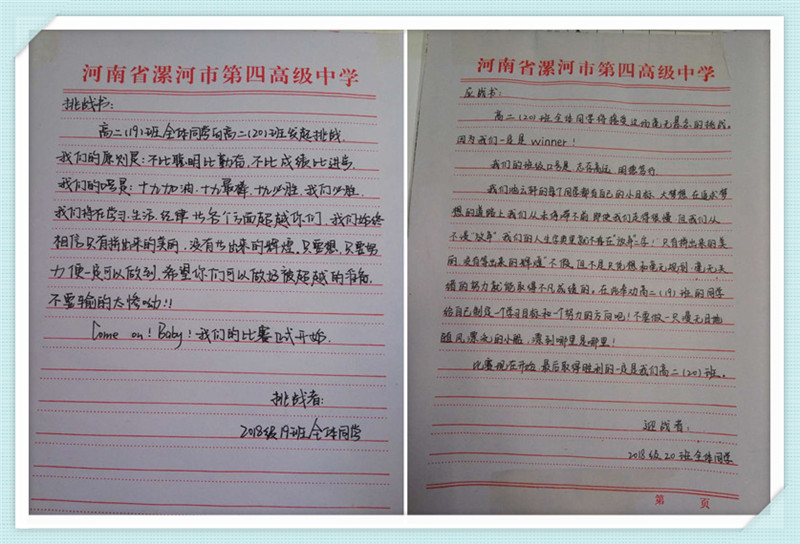 河南省漯河市第四高级中学
挑战书:
高二(19)班全体同学向高二(20)班发起挑战.
我们的原则是:不比聪明比勤奋,不比成绩比进步.
我们的口号是:十九加油,十九最棒,十九必胜,我们必胜.
我们将在学习、生活、纪律 等各个方面超越你们,我们始终
相信只有拼出来的美丽,没有等出来的辉煌,只要想,只要努
力便一定可以做到,希望你们可以做好被超越的准备,
不要输的太惨呦!!
Come on! Baby! 我们的比赛正式开始.
挑战者:
2018级19班全体同学
河南省漯河市第四高级中学
应战书:
高二(20)班全体同学将接受这场毫无悬念的挑战。
因为我们一定是 winner!
我们的班级口号是 志存高远 因恩笃行.
我们 的每个同学都有自己的小目标,大梦想,在追求梦
想的道路上我们从未停滞不前,即使我们走得很慢,但我们从
不谈"放弃"我们的人生字典里就不存在"放弃"二字!只有拼出来的美
的,没有等出来的辉煌"不假,但不是只凭想和毫无规划 毫无头
绪的努力就能取得不凡成绩的,在此奉劝高二(19)班的同学
给自己制定一个学习目标和一个努力的方向吧!不要做一只漫无目地
随风漂流的小船,漂到哪里是哪里!
比赛现在开始 最后取得胜利的一定是我们高二(20)班。
迎战者:
2018级20班全体同学
第 页